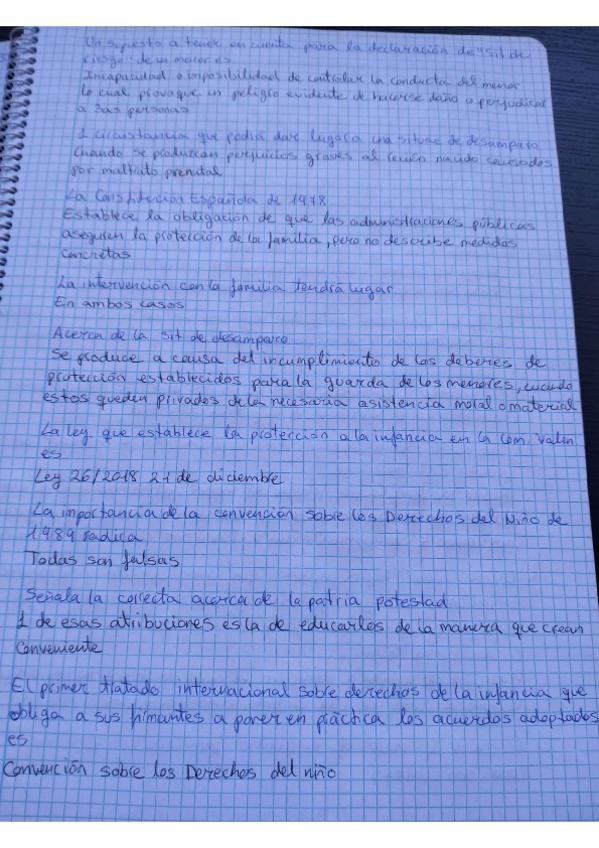 Un supuesto a tener en cuenta para la declaración de "sit de
riesgo" de un menor es
Incapacidad o imposibilidad de controlar la conducta del menor
lo cual provoque un peligro evidente de hacerse daño o perjudicar
a 3as personas
1 circustancia que podría dar lugar a una situac de desamparo
Cuando se produzcan perjuicios graves al recién nacido causados
por maltrato prenatal
La Constitución Española de 1978
Establece la obligación de que las administraciones públicas
aseguren la protección de la familia, pero no describe medidas
concretas
La intervención con la familia tendrá lugar
En ambos casos
Acerca de la sit de desamparo
Se produce a causa del incumplimiento de los deberes de
protección establecidos para la guarda de los menores, cuando
estos queden privados de la necesaria asistencia moral o material
La ley que establece la protección a la infancia en la Com. Valen
es
Ley 26/2018 21 de diciembre
La importancia de la convención sobre los Derechos del Niño de
1989 radica
Todas son falsas
Señala la correcta acerca de la patria potestad
1 de esas atribuciones es la de educarlos de la manera que crean
conveniente
El primer tratado internacional sobre derechos de la infancia que
obliga a sus firmantes a poner en práctica los acuerdos adoptados
es
Convención sobre los Derechos del niño